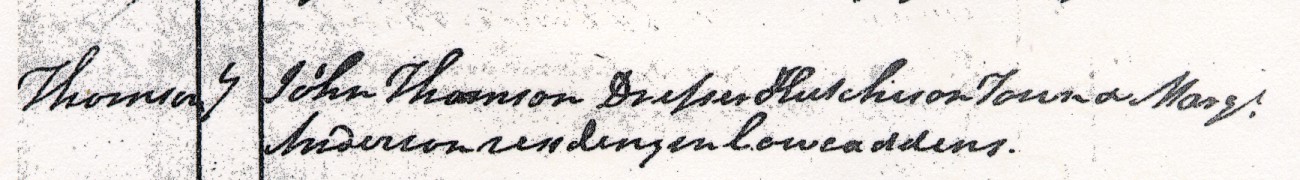 Thomson 4 John Thomson Dresser Hutchison Town & Margt.
Anderson residing in Cowcaddens.